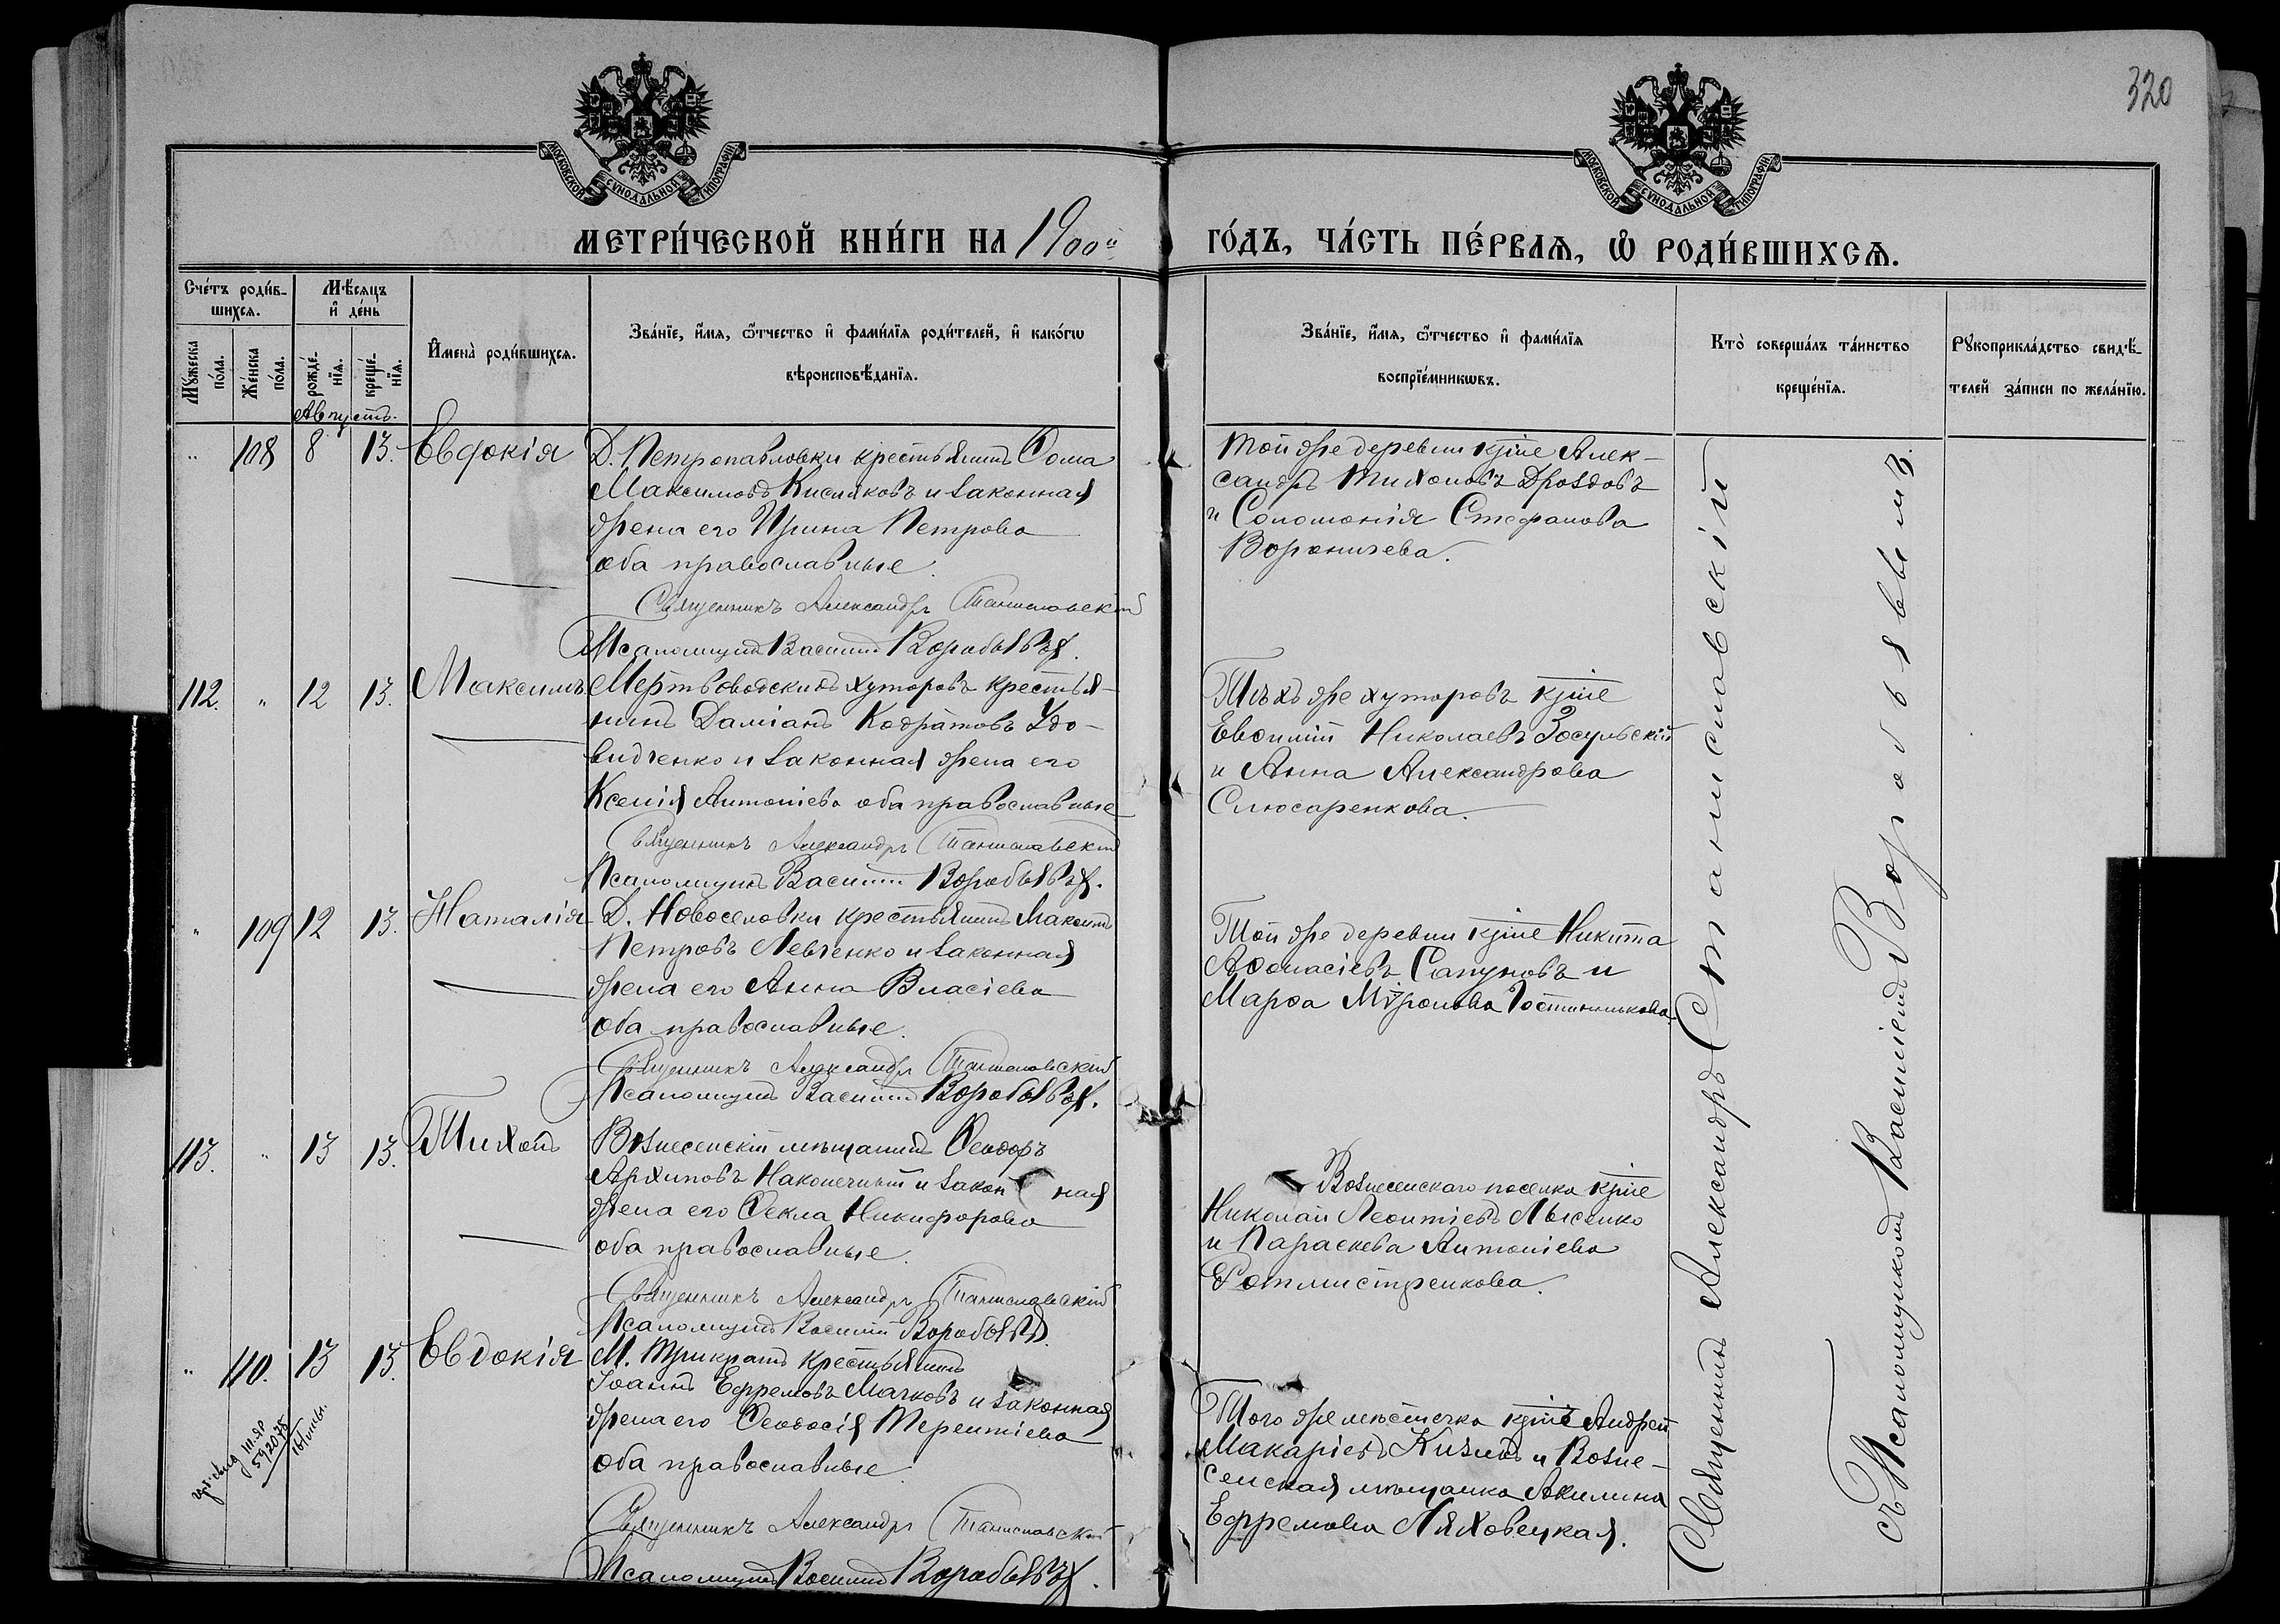 320
МОСКОВСКОЙ СѴНОДАЛЬНОЙ ТИПОГРАФІИ
МОСКОВСКОЙ СѴНОДАЛЬНОЙ ТИПОГРАФІИ
МЕТРИ́ЧЕСКОЙ КНИ́ГИ НА 1900й
ГО́ДЪ, ЧА́СТЬ ПЕ́РВАѦ, Ѡ҆ РОДИ́ВШИХСѦ.
Сче́тъ роди́в-
шихсѧ.
Мѣ́сѧцъ
и҆ де́нь
Мꙋ́жеска
по́ла.
Же́нска
по́ла.
рожде́-
нїѧ.
креще́-
нїѧ.
И҆мена̀ роди́вшихсѧ.
Зва́нїе, и҆́мѧ, ѻ҆́тчество и҆ фами́лїѧ роди́телей, и҆ како́гѡ
вѣроисповѣ́данїѧ.
Зва́нїе, и҆́мѧ, ѻ҆́тчество и҆ фами́лїѧ
воспрїе́мникѡвъ.
Кто̀ соверша́лъ та́инство
креще́нїѧ.
Рꙋкоприкла́дство свидѣ́-
телей за́писи по жела́нїю.
Августъ.
" 108 8 13. Евдокія
Д. Петропавловки крестьянинъ Ѳома
Максимовъ Кисляковъ и законная
жена его Ирина Петрова
оба православные.
Священникъ Александръ Станиславскій
Псаломщикъ Василій Воробьявъ.
Той же деревни кр̅не Алек-
сандръ Тихоновъ Дроздовъ
и Соломонія Стефанова
Вороничева.
112. " 12 13. Максимъ
Мертвоводскихъ хуторовъ крестья-
нинъ Даміанъ Кодратовъ Удо-
видченко и законная жена его
Ксенія Антоніева оба православные
Священникъ Александръ Станиславскій
Псаломщикъ Василій Воробьявъ.
Тѣхъ же хуторовъ кр̅не
Евѳимій Николаевъ Зосульскій
и Анна Александрова
Слюсаренкова.
" 109 12 13. Наталія
Д. Новоселовки крестьянинъ Максимъ
Петровъ Левченко и законная
жена его Анна Власіева
оба православные.
Священникъ Александръ Станиславскій
Псаломщикъ Василій Воробьявъ.
Той же деревни кр̅не Никита
Аѳонасіевъ Сапуновъ и
Марѳа Мѵронова Гостинникова.
113. " 13 13. Тихонъ
Вознесенскій мѣщанинъ Ѳеодоръ
Архиповъ Наконечный и законная
жена его Ѳекла Никифорова
оба православные.
Священникъ Александръ Станиславскій
Псаломщикъ Василій Воробьявъ.
Вознесенскаго поселка кр̅не
Николай Леонтіевъ Лысенко
и Параскева Антоніева
Ротмистренкова.
" 110. 13 13. Евдокія
М. Трикратъ крестьянинъ
Іоаннъ Ефремовъ Мачковъ и законная
жена его Ѳеодосія Терентіева
оба православные
Священникъ Александръ Станиславскій
Псаломщикъ Василій Воробьявъ.
592075
Того же мѣстечка кр̅не Андрей
Макаріевъ Кизимъ и Возне-
сенская мѣщанка Акилина
Ефремова Ляховецкая.
Священникъ Александръ Станиславскій
съ Псаломщикомъ Василіемъ Воробьявымъ.